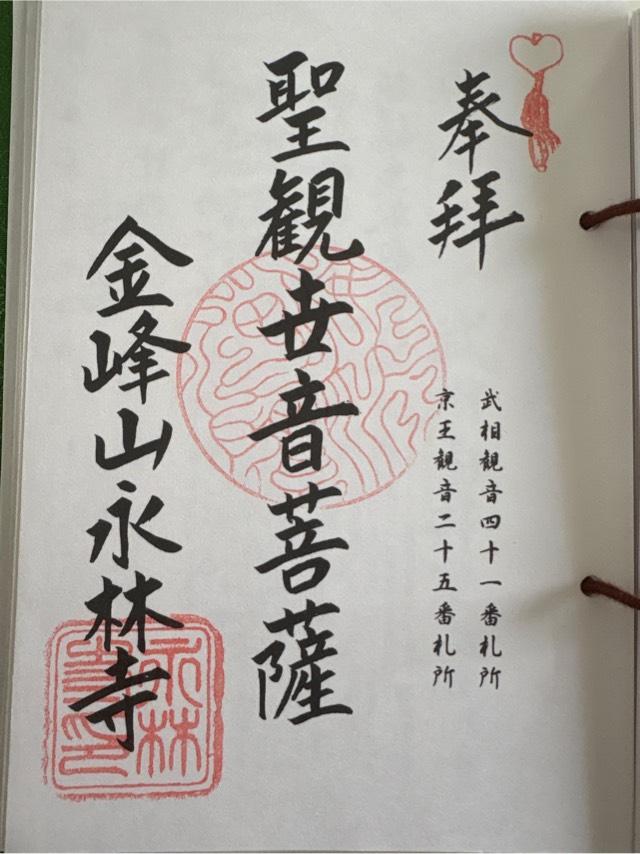 奉拝
武相観音四十一番札所
京王観音二十五番札所
聖観世音菩薩
金峰山永林寺